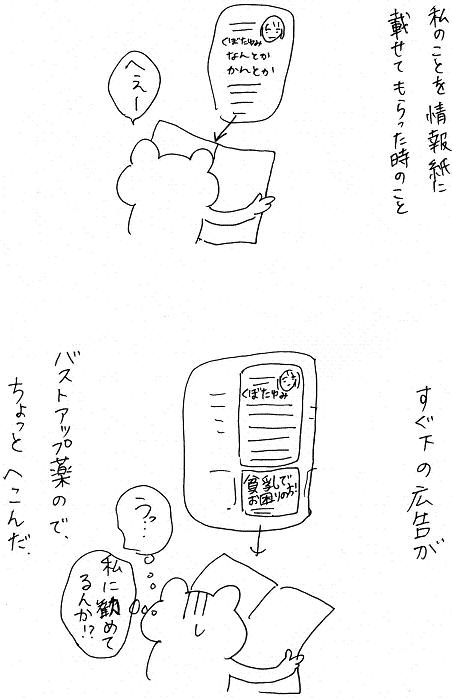 私のことを情報紙に
載せてもらった時のこと
くぼたゆみ
なんとか
かんとか
へぇー
すぐ下の広告が
くぼたゆみ
貧乳で
お困りの方!
バストアップ薬ので、
ちょっとへこんだ.
うっ…
私に勧めて
るんか!?